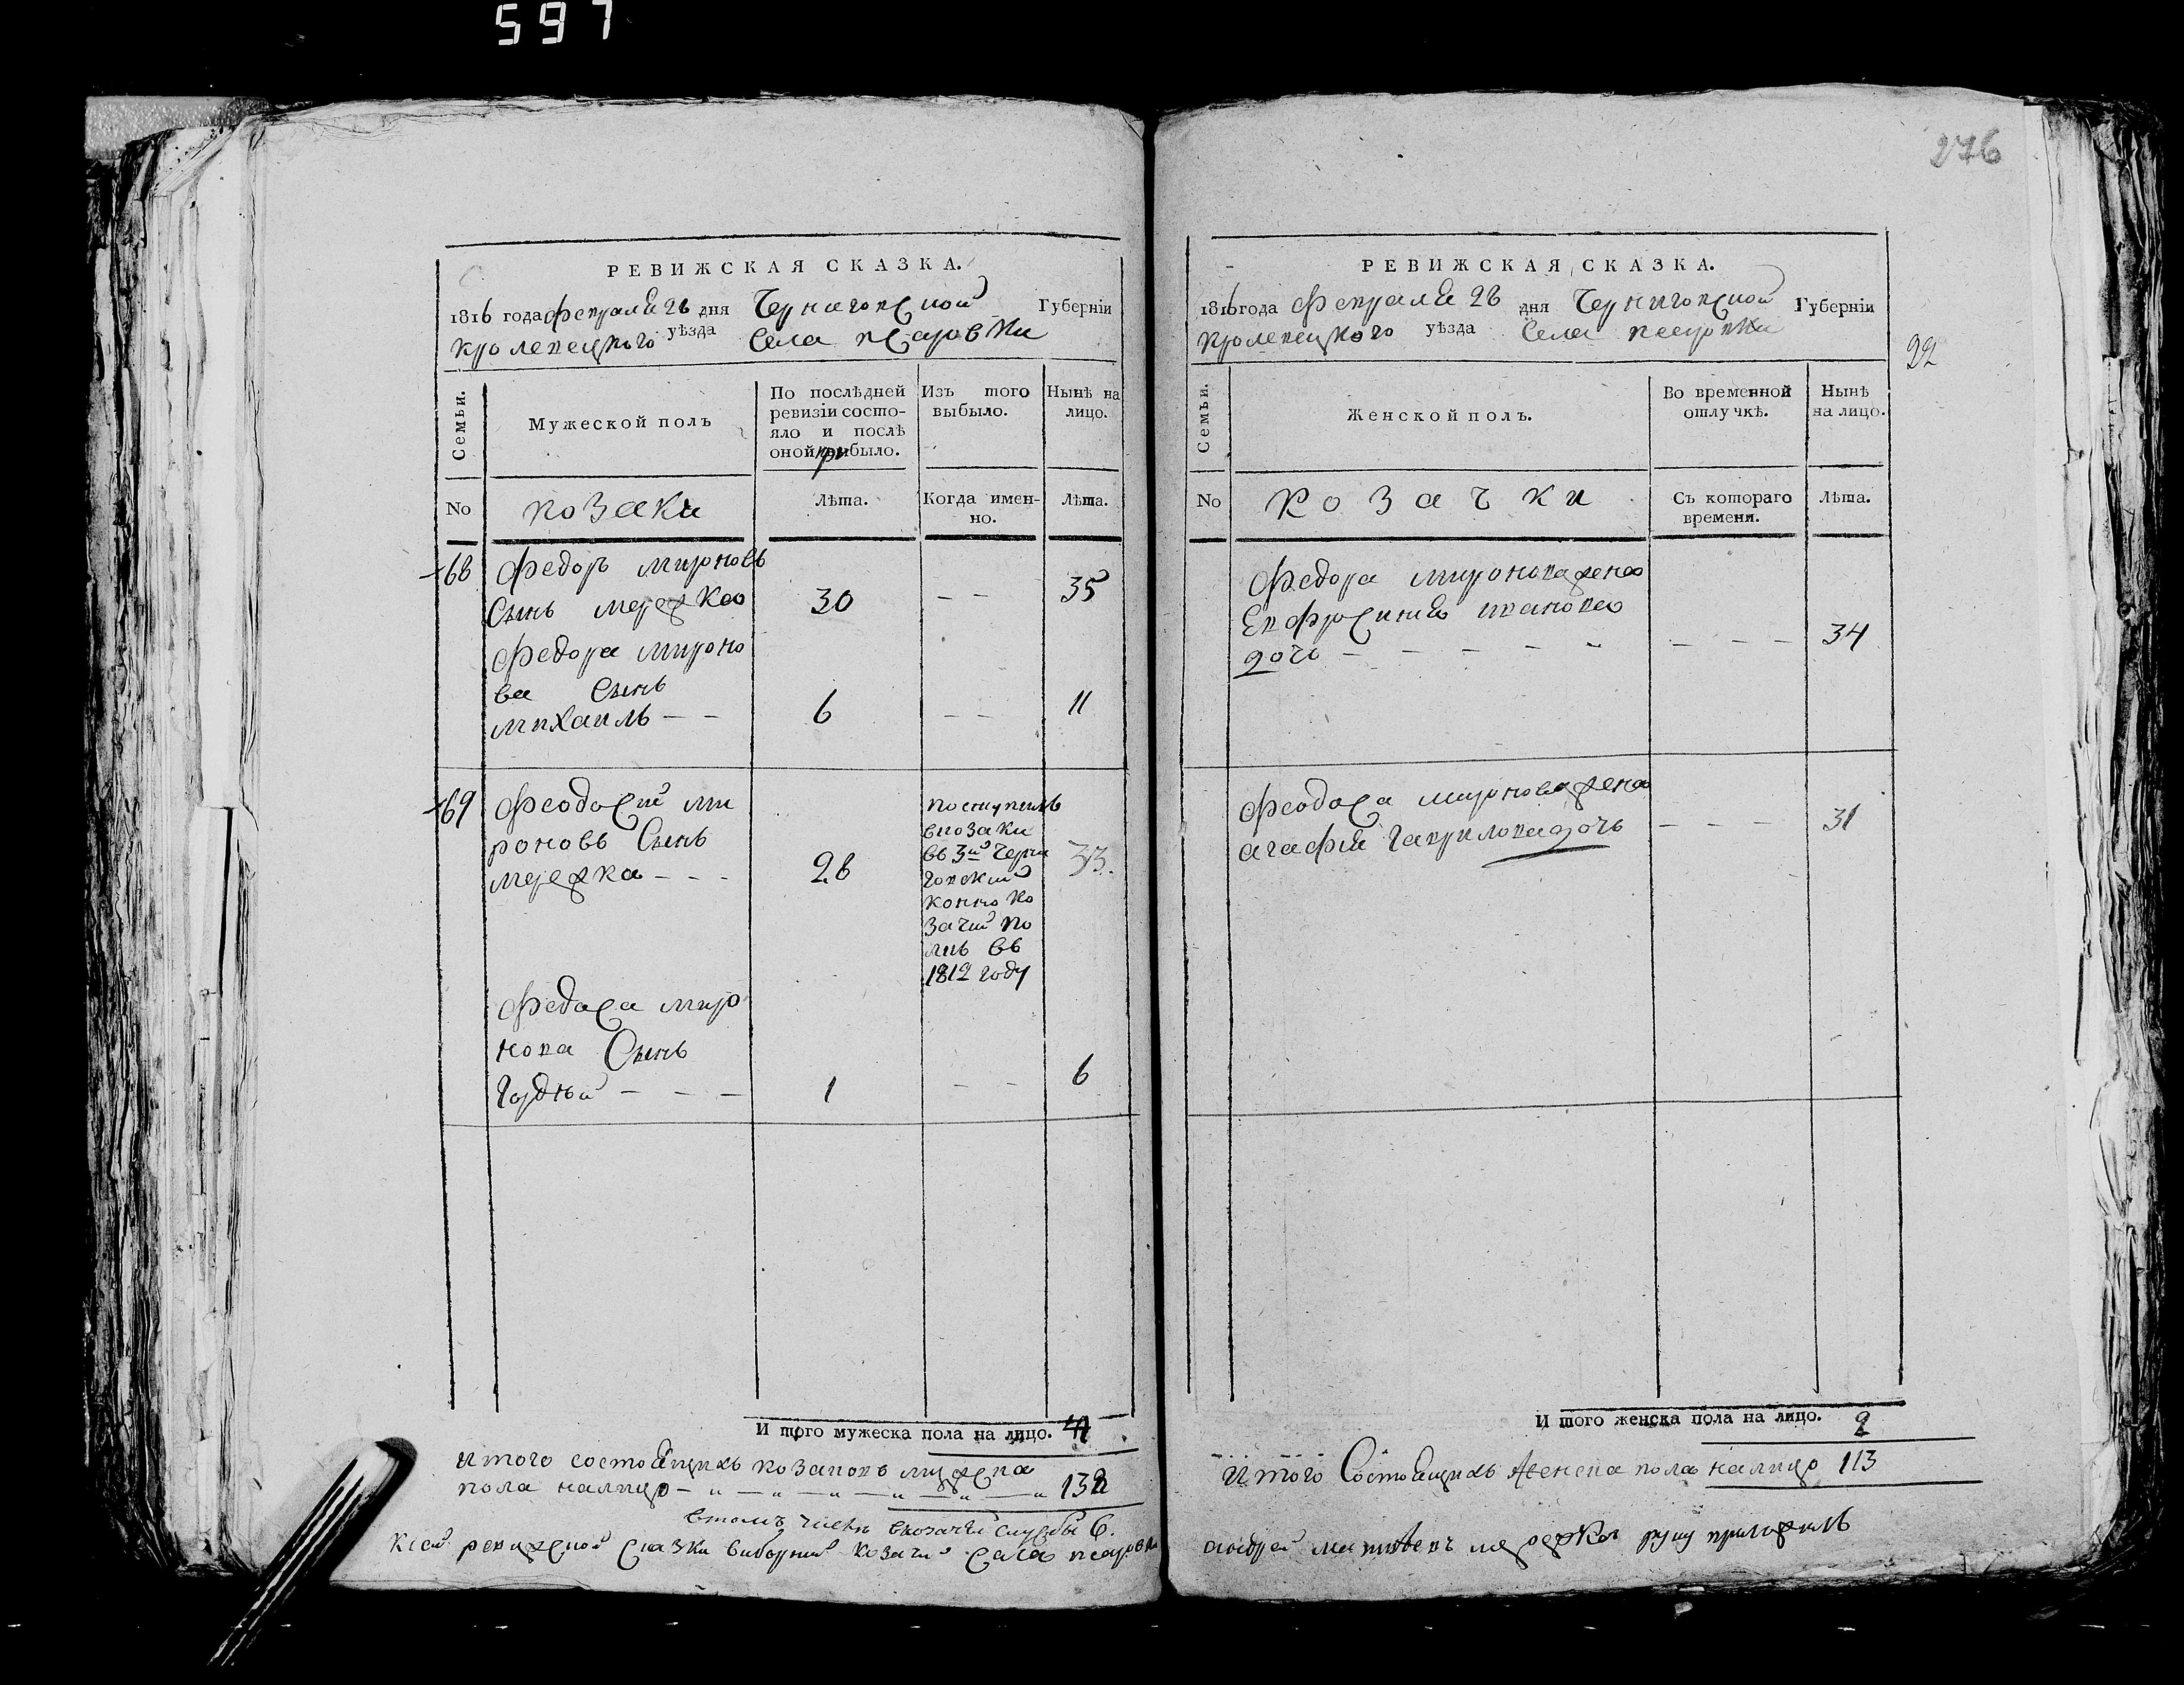 597
276
РЕВИЖСКАЯ СКАЗКА.
1816 года февраля 28 дня Черниговской Губерніи
Кролевецкого уѣзда Села Псаровки
Семьи.
Мужеской полъ
По послѣдней
ревизіи состо-
яло и послѣ
оной прибыло.
Изъ того
выбыло.
Нынѣ на
лицо.
No
козаки
Лѣта.
Когда имен-
но.
Лѣта.
68 Федоръ Мироновъ
Сынъ мережка 30 — — 35
Федора Мироно
ва Сынъ
михаилъ — — 6 — — 11
69 Феодосій ми
роновъ Сынъ
мережка — — — 28 33.
поступилъ
вкозаки
въ 3й Черни
говский
конно ко
зачий по
лкъ въ
1812 году
Федоса миро
нова Сынъ
Гордѣй — — — 1 — — 6
И того мужеска пола на лицо. 4
Итого состоящихъ козаковъ мужеска
пола налицо 132
втомъ числѣ вкозачей службы 6.
Ксей ревижской сказки виборний козачий села псаровки
РЕВИЖСКАЯ СКАЗКА.
1816 года Февраля 28 дня Черниговской Губерніи
Кролевецкого уѣзда Села псаровки
22
Семьи.
Женской полъ.
Во временной
отлучкѣ.
Нынѣ
на лицо.
No
козачки
Съ котораго
времени.
Лѣта.
Федора миронова жена
Евфросиния иванова
дочь — — — — — — — — 34
Феодоса миронова жена
агафия Гаврилова дочь — — — 31
И того женска пола на лицо. 2
Итого Состоящихъ женска пола налицо 113
андрей мережка руку приложилъ